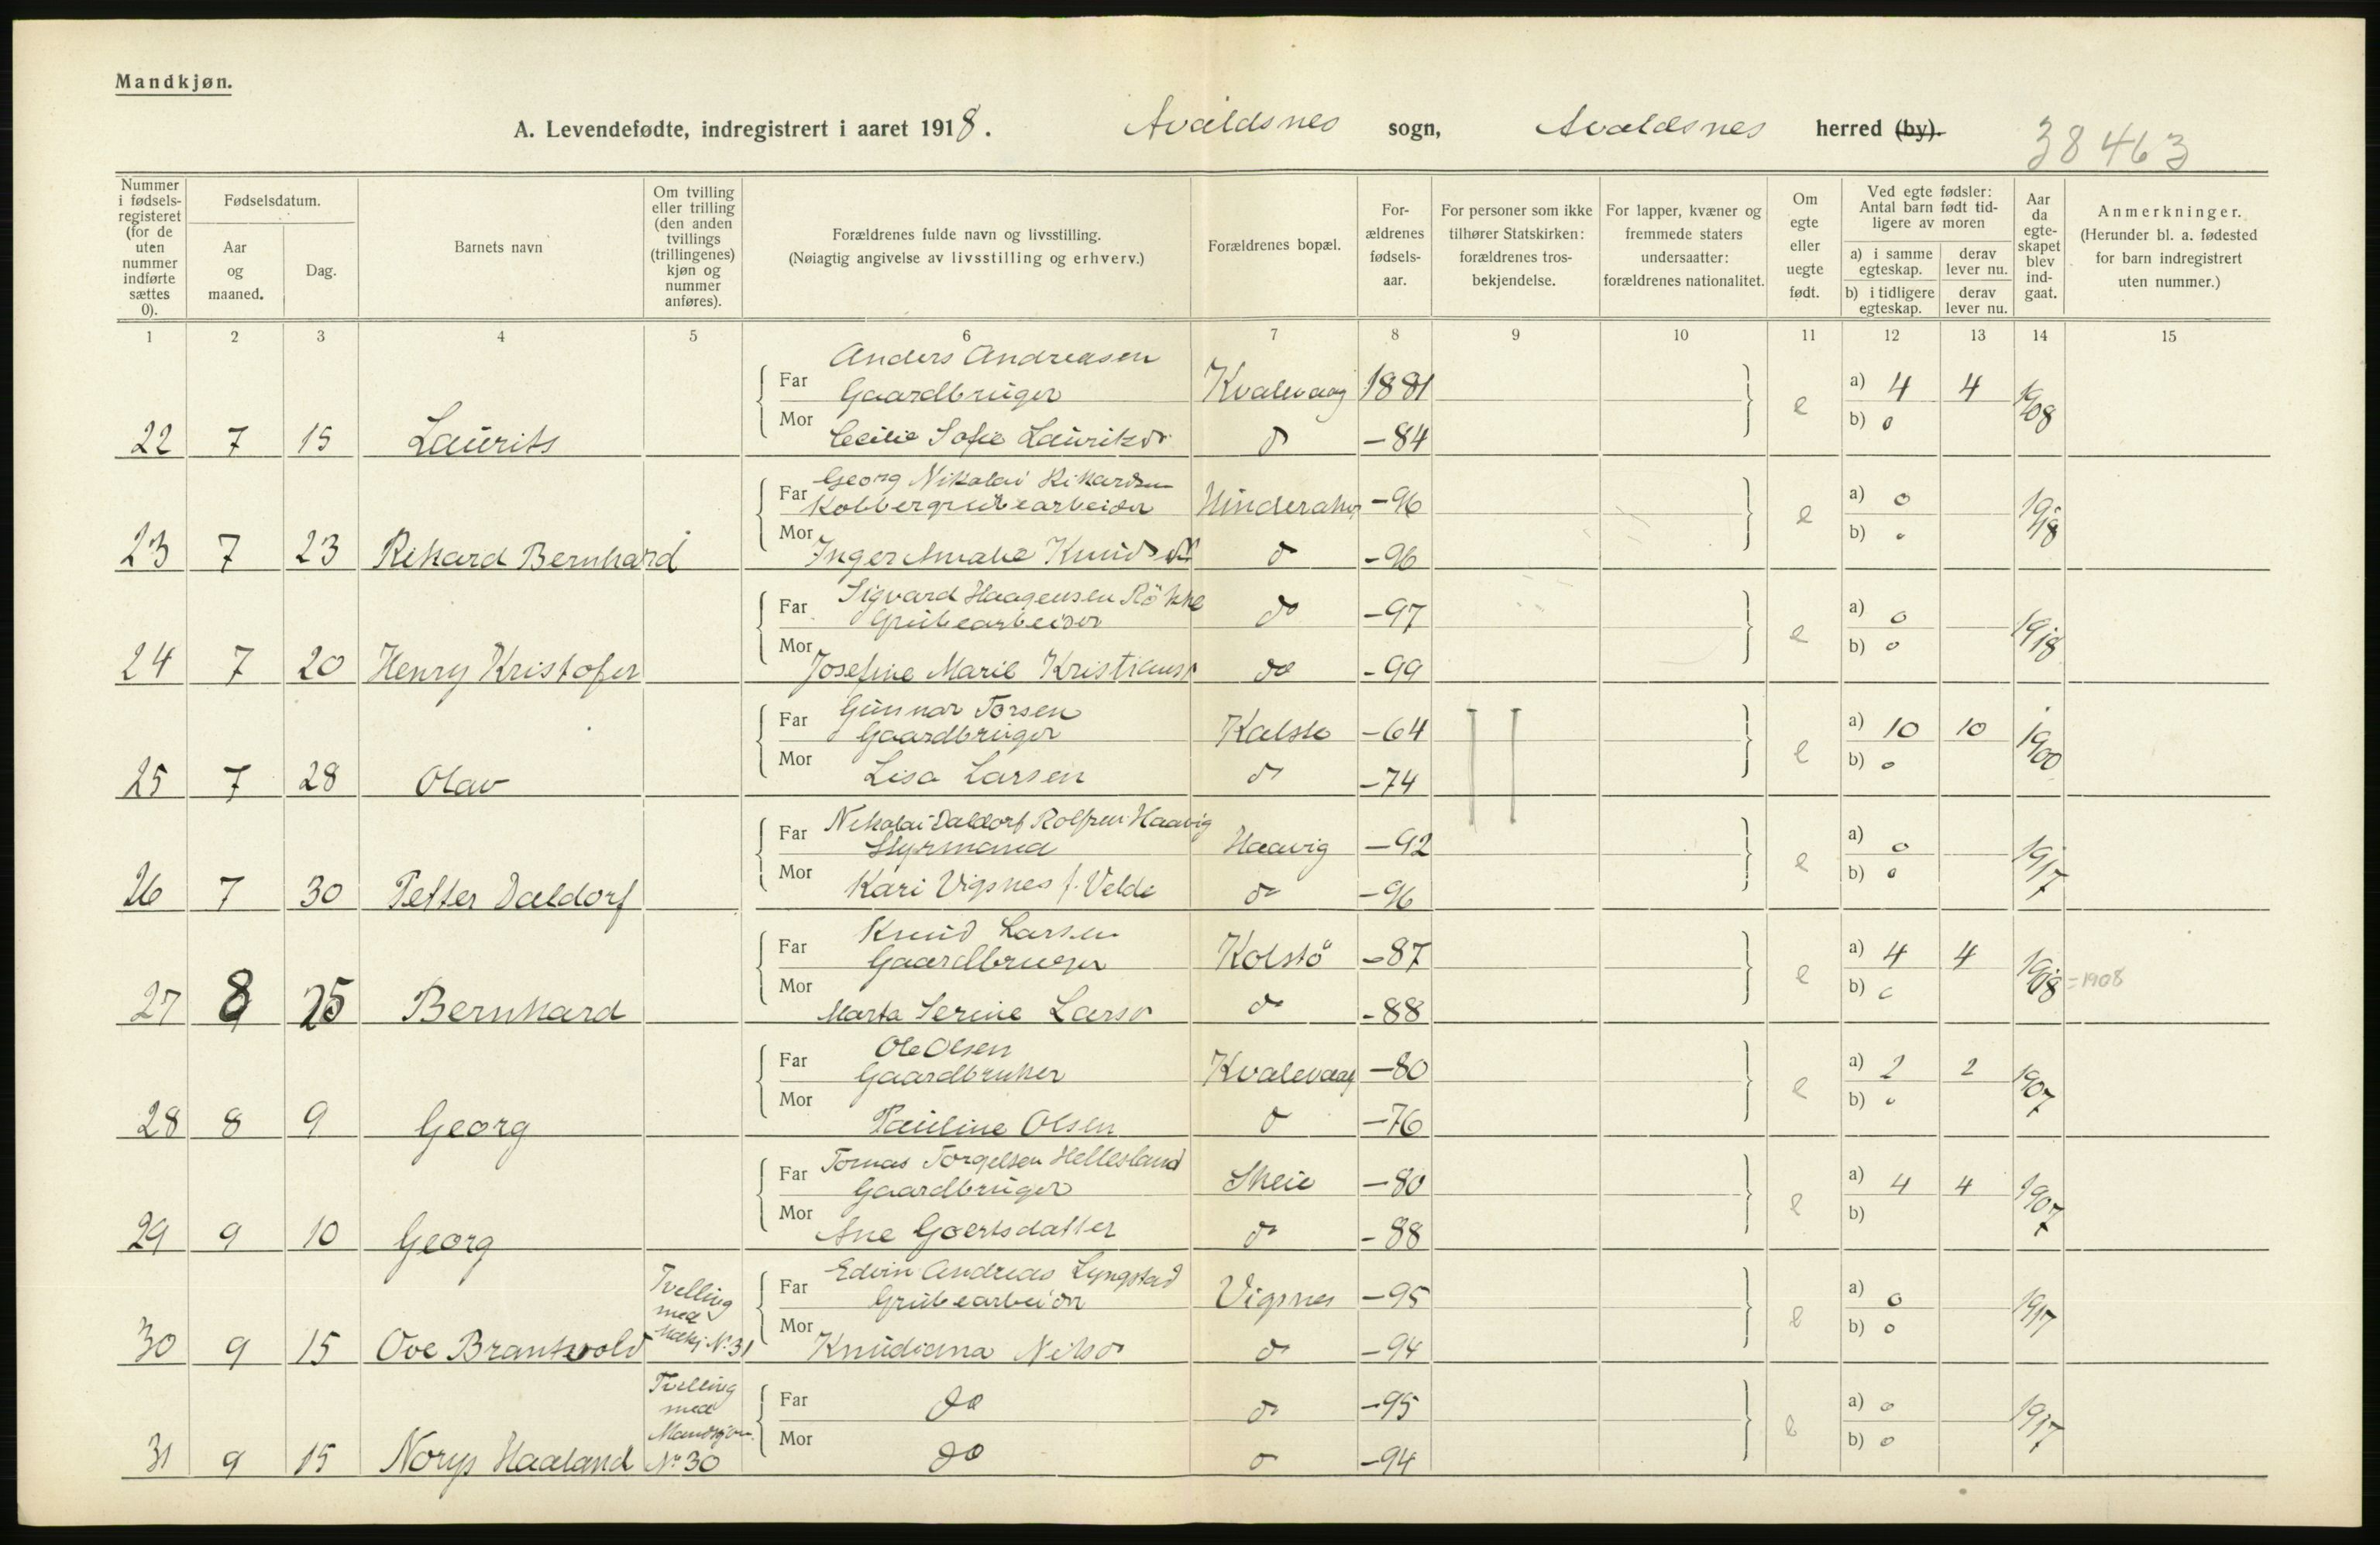 Mandkjøn.
A. Levendefødte, indregistrert i aaret 1918. Avaldsnes sogn, Avaldsnes herred (by).
38463
Nummer i fødsels-registeret (for de uten nummer indførte sættes 0).
Fødselsdatum.
Aar og maaned.
Dag.
Barnets navn
Om tvilling eller trilling (den anden tvillings (trillingenes) kjøn og nummer anføres).
Forældrenes fulde navn og livsstilling.
(Nøiagtig angivelse av livsstilling og erhverv.)
Forældrenes bopæl.
For-ældrenes fødsels-aar.
For personer som ikke tilhører Statskirken: forældrenes tros-bekjendelse.
For lapper, kvæner og fremmede staters undersaatter: forældrenes nationalitet.
Om egte eller uegte født.
Ved egte fødsler: Antal barn født tid-ligere av moren
a) i samme egteskap.
derav lever nu.
b) i tidligere egteskap.
derav lever nu.
Aar da egte-skapet blev ind-gaat.
Anmerkninger.
(Herunder bl. a. fødested for barn indregistrert uten nummer.)
1 2 3 4 5 6 7 8 9 10 11 12 13 14 15
Anders Andreasen
Far Gaardbruger Kvalevaag 1881 e a) 4 4 1908
22 7 15 Laurits Mor Cecilie Sofie d -84 b) 0
Georg Nikolai Rikardsen
Far Kobbergrubearbeider -96 e a) 0 1918
23 7 23 Rikard Bernhard Mor Inger Amalie d -96 b) 0
Sigvard Haagensen Rökke
Far Grubearbeider do -97 e a) 0 1918
24 7 20 Henry Kristofer Mor Josefine Marie do -99 b) 0
Gunnar Torsen
Far Gaardbruger Kalstø -64 e a) 10 10 1900
25 7 28 Olav Mor Lisa Larsen d -74 b) 0
Nikolai Daldorf Rolfsen Haavig
Far Styrmand Haavig -92 e a) 0 1917
26 7 30 Petter Daldorf Mor Kari Vigsnes f. Velde d -96 b) 0
Knud Larsen
Far Gaardbruger Kolstö -87 e a) 4 4 1908 =1908
27 8 25 Bernhard Mor Marta Serine Larsd d -88 b) 0
Ole Olsen
Far Gaardbruker Kvalevaag -80 e a) 2 2 1907
28 8 9 Georg Mor Pauline Olsen d -76 b) 0
Tomas Torgelsen Hellesland
Far Gaardbruger Skeie -80 e a) 4 4 1907
29 9 10 Georg Mor Ane Goertsdatter d -88 b)
Edvin Andreas Lyngstad
Tvelling med No. 31 Far Grubearbeider Vigsnes -95 e a) 0 1917
30 9 15 Ove Brantvold Mor Knudiana Nilsd d -94 b) 0
Tvelling med Mandkjøn Far do d -95 e a) 0 1917
31 9 15 Norys Haaland No 30 Mor do d -94 b) 0